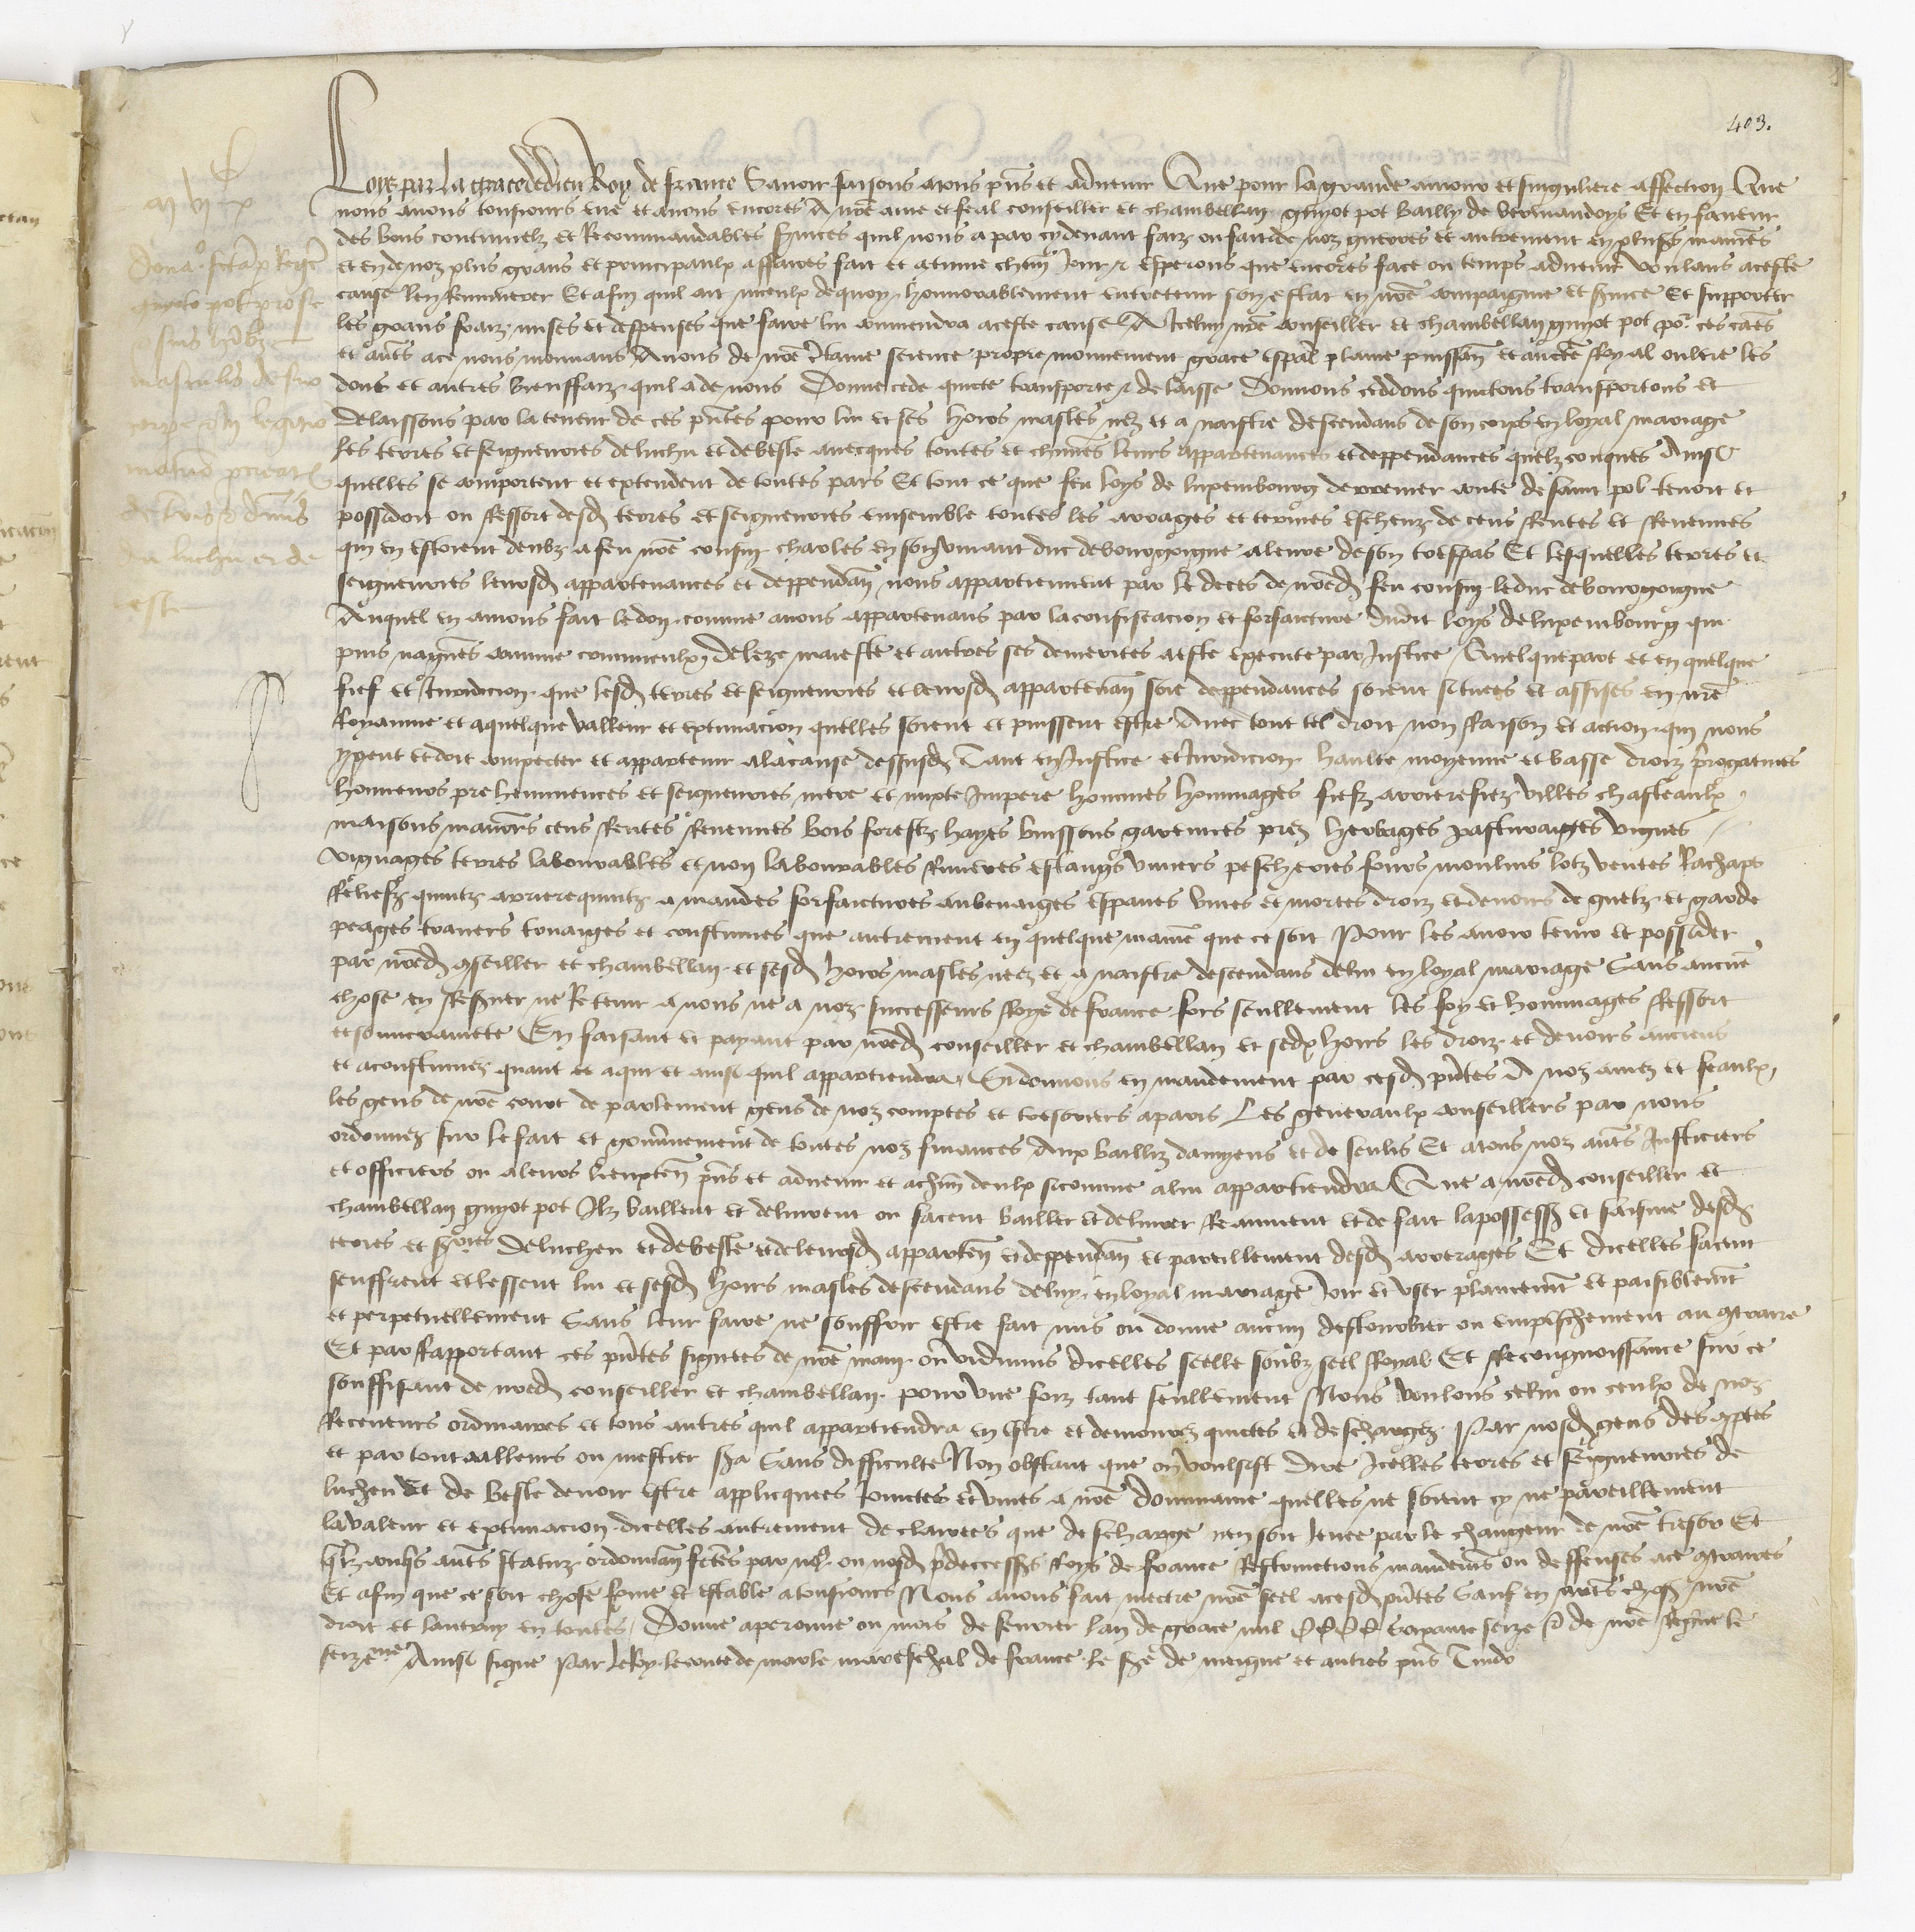 403.
Loys par la grace de dieu Roy de france Savoir faisons atous pns et advenir Que pour la grande amour et singuliere affection Que
nous avons tousiours eue et avons encores A nre ame et feal conseiller et chambellan guyot pot Bailly de vermandoys Et en faveur
des bons continuelz et Recommandables services quil nous a par cy devant faiz ou fait de noz guerres et autrement en pluss manieres
et en de noz plus grans et principaulx affaires fait et continue chun Jour et esperons que encores face ou temps advenir voulans aceste
cause len Remunerer Et afin quil ait mieulx dequoy honnorablement entretenir son estat en nre compaignie et service Et supporter
les grans fraiz mises et despenses que faire lui conviendra aceste cause A Icelluy nre conseiller et chambellan guyot pot po ces causes
et autres ace nous mouvans Avons de nre ctaine science propre mouvement grace espal plaine puissan et aucte Royal oultre les
dons et autres bienffaiz quil a de nous Donne cede quicte transporte et delaisse Donnons ceddons quictons transportons et
delaissons par la teneur de ces pntes pour lui et ses hoirs masles nez et a naistre descendans de son corps en loyal mariage
les terres et seigneuries de luchu et de besle avecques toutes et chunes leurs appartenances et deppendances quelzconques Ainsi
quelles se comportent et extendent de toutes pars Et tout ce que feu loys de luxembourg derrenier conte de saint pol tenoit et
possidoit ou Ressort desd terres et seigneuries ensemble toutes les arrages et termes escheuz de cens Rentes et Revenues
qui en estoient deubz a feu nre cousin charles en son vivant duc de bourgoigne aleure de son trespas Et lesquelles terres et
seigneuries leursd appartenances et deppendan nous appartiennent par le deces de nred feu cousin le duc de bourgoigne
Auquel en avions fait le don comme anous appartenans par la confiscacion et forfaicture dudit loys de luxembourg qui
puis nagueres comme crimineulx de leze maieste et autres ses demerites aeste execute par Justice Quelque part et en quelque
fief et Juridicion que lesd terres et seigneuries et leursd appartenan soie deppendances soient situees et assises en nre
Royaume et aquelque valleur et extimacion quelles soient et puissent estre Avec tout tel droit non Raison et action qui nous
y peut et doit competer et appartenir alacause dessusd Tant en Justice et Juridicion haulte moyenne et basse droiz prerogatives
honneurs preheminences et seigneuries mere et mixte Impere hommes hommages fiefz arrierefiez villes chasteaulx
maisons manoirs cens Rentes Revenues bois forestz hayes buissons garennes prez herbages pasturaiges vignes
vignages terres labourables et non labourables Rivieres estangs viviers pescheries fours moulins lotz ventes Rachapts
Reliefz quintz arrierequintz amandes forfaictures aubenaiges espaves vives et mortes droiz et devoirs de guetz et garde
peages travers tonaiges et coustumes que autrement en quelque maniere que ce soit Pour les avoir tenir et possider
par nred conseiller et chambellan et sesd hoirs masles nez et a naistre descendans delui en loyal mariage Sans aucune
chose en Reserver ne Retenir anous ne a noz successeurs Roys de france fors seullement les foy et hommages Ressort
et souverainete En faisant et payant par nred conseiller et chambellan et sesd hoirs les droiz et devoirs anciens
et acoustumez quant et aqui et ainsi quil appartiendra Si donnons en mandement par cesd pntes A noz amez et feaulx
les gens de nre court de parlement gens de noz comptes et tresoriers aparis Les generaulx conseillers par nous
ordonnez sur le fait et gouvernement de toutes noz finances Aux bailliz damyens et de senlis Et atous noz autres Justiciers
et officiers ou aleurs lieuxten pns et advenir et achun deulx sicomme alui appartiendra Que anred conseiller et
chambellan guyot pot Ilz baillent et delivrent ou facent bailler et delivrer Reaument et de fait la possess et saisine desd
terres et sries de luchen et de besle et de leursd apparten et deppendan et pareillement desd arrerages Et dicelles facent
seuffrent et lessent lui et sesd hoirs masles descendans deluy en loyal mariage Joir et user plainemt et paisiblemt
et perpetuellement Sans leur faire ne souffrir estre fait mis ou donne aucun destourbier ou empeschement au contraire
Et par Rapportant ces pntes signees de nre main ou vidimus dicelles seelle soubz seel Royal Et Recongnoissance sur ce
souffisant de nred conseiller et chambellan pour une foiz tant seullement Nous voulons celui ou ceulx de noz
Receveurs ordinaires et tous autres quil appartiendra en estre et demourez quictes et deschargez Par nosd gens des comptes
et par tout ailleurs ou mestier sera Sans difficulte Non obstant que on voulsist dire Icelles terres et seigneuries de
luchen Et de besle devoir estre applicquees Joinctes et unies a nre dommaine quelles ne soient cy ne pareillement
lavaleur et extimacion dicelles autrement declairees que descharge nen soit levee par le changeur de nre tresor Et
qlzconqs autres statuz ordonnan fctes par nos ou nosd predecesss Roys de france Restrinctions mandemens ou deffenses ace contraires
Et afin que ce soit chose ferme et estable atousiours Nous avons fait mectre nre seel acesd pntes Sauf en autres choses nre
droit et lautruy en toutes Donne aperonne ou mois de fevrier lan de grace mil CCCC Soixante seize Et de nre Regne le
seizme Ainsi signe Par le Roy le conte de marle mareschal de france le sre de meigne et autres pns Tindo
Dona fcta p Regem
guyoto pot pro se
suis hedibz
masculis de suo
corpe in legitio
matrio procreatis
de terris et dniis
de luchu et de
besle